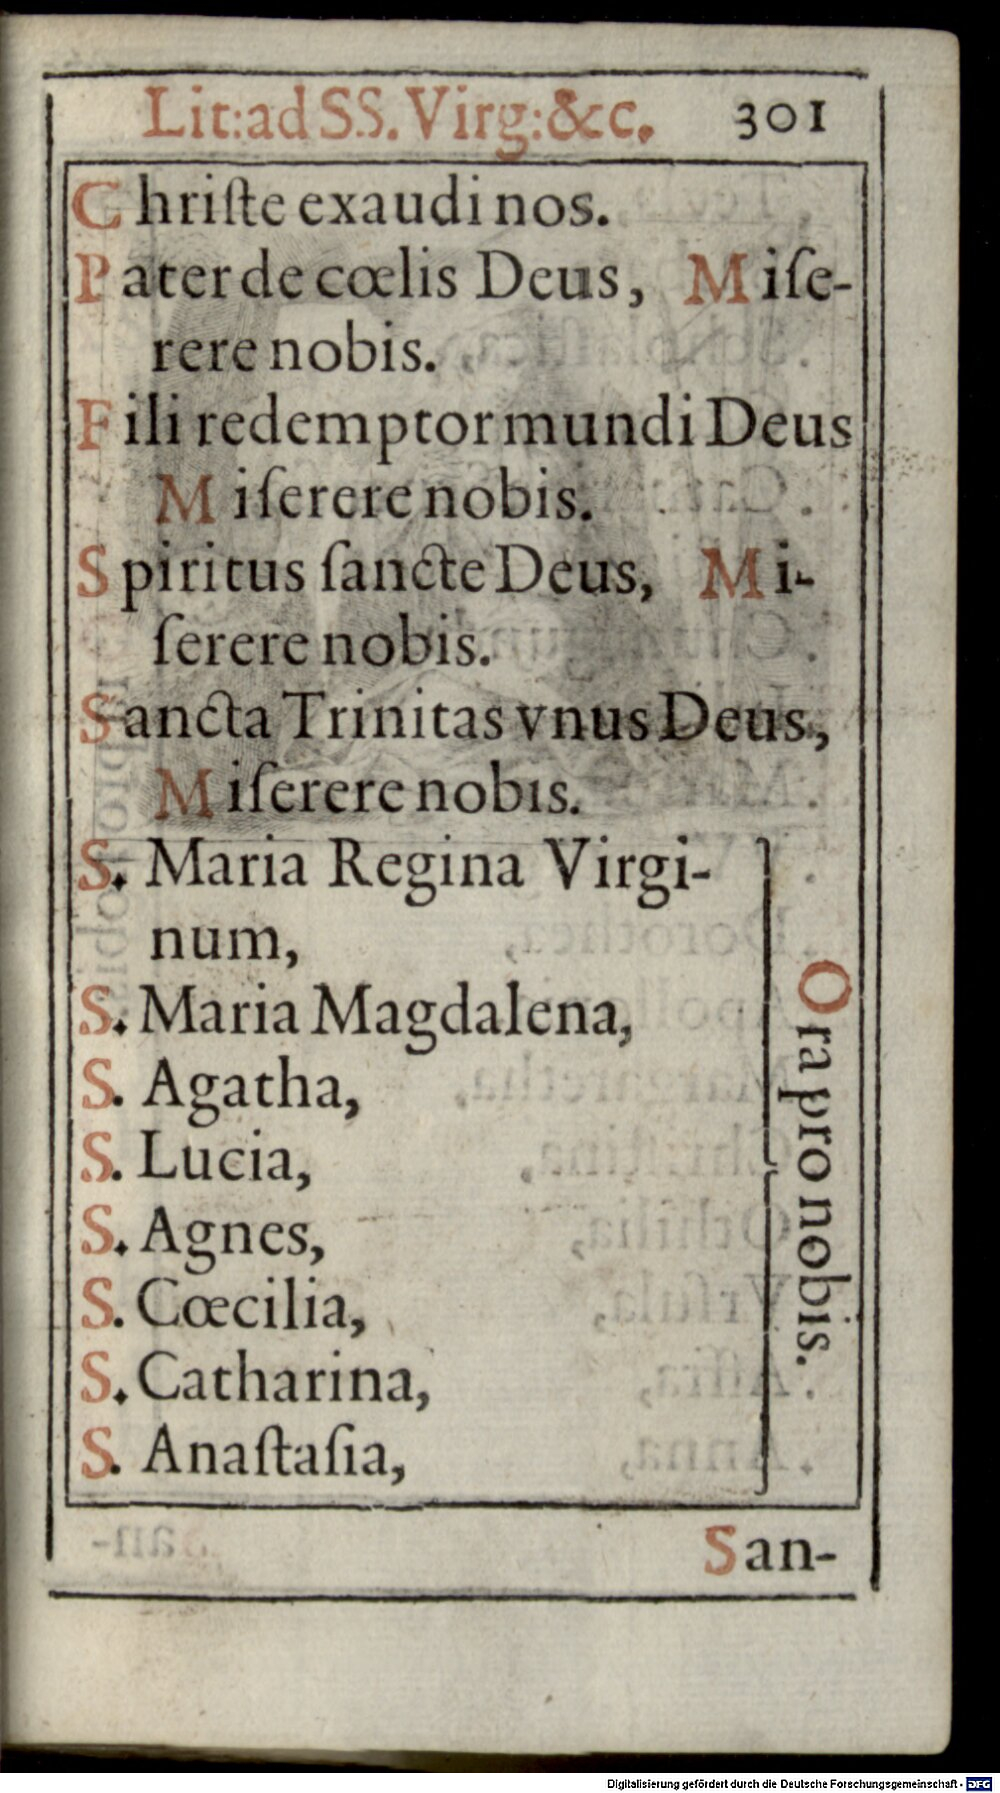 Lit: ad SS. Virg: &c. 301
Chriſte exaudi nos.
Pater de cœlis Deus, Miſe-
rere nobis.
Fili redemptor mundi Deus
Miſerere nobis.
Spiritus ſancte Deus, Mi-
ſerere nobis.
Sancta Trinitas vnus Deus,
Miſerere nobis.
S. Maria Regina Virgi-
num,
S. Maria Magdalena,
S. Agatha,
S. Lucia,
S. Agnes,
S. Cœcilia,
S. Catharina,
S. Anaſtaſia,
Ora pro nobis.
San-
Digitalisierung gefördert durch die Deutsche Forschungsgemeinschaft - DFG